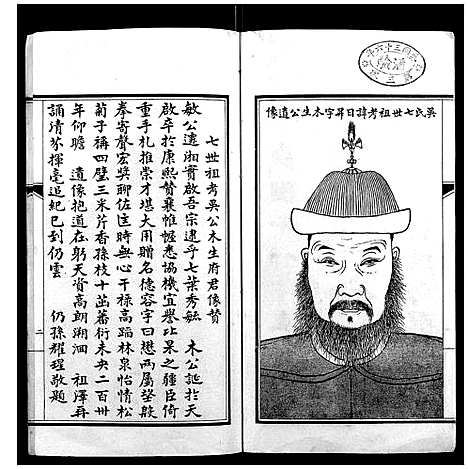 吳氏七世祖考諱日昇字木生公遺像
七世祖考吳公木生府君像贊
敏公遠湘實啟吾宗逮乎七葉秀毓　木公誕於天
啟卒於康熙贊襄帷幄悉協機宜譽比杲之疆臣倚
重手札推崇才堪大用贈名德容字曰懋兩屬望殷
拳寄聲宏獎聊佐匡時無心干祿高蹈林泉怡情松
菊子稱四壁三米芹香孫枝十茁蕃衍未央二百卅
年仰瞻　遺像抱道在躬天資高朗溯洄　祖澤再
誦清芬揮毫追紀已到仍雲　仍孫耀瑆敬題
二